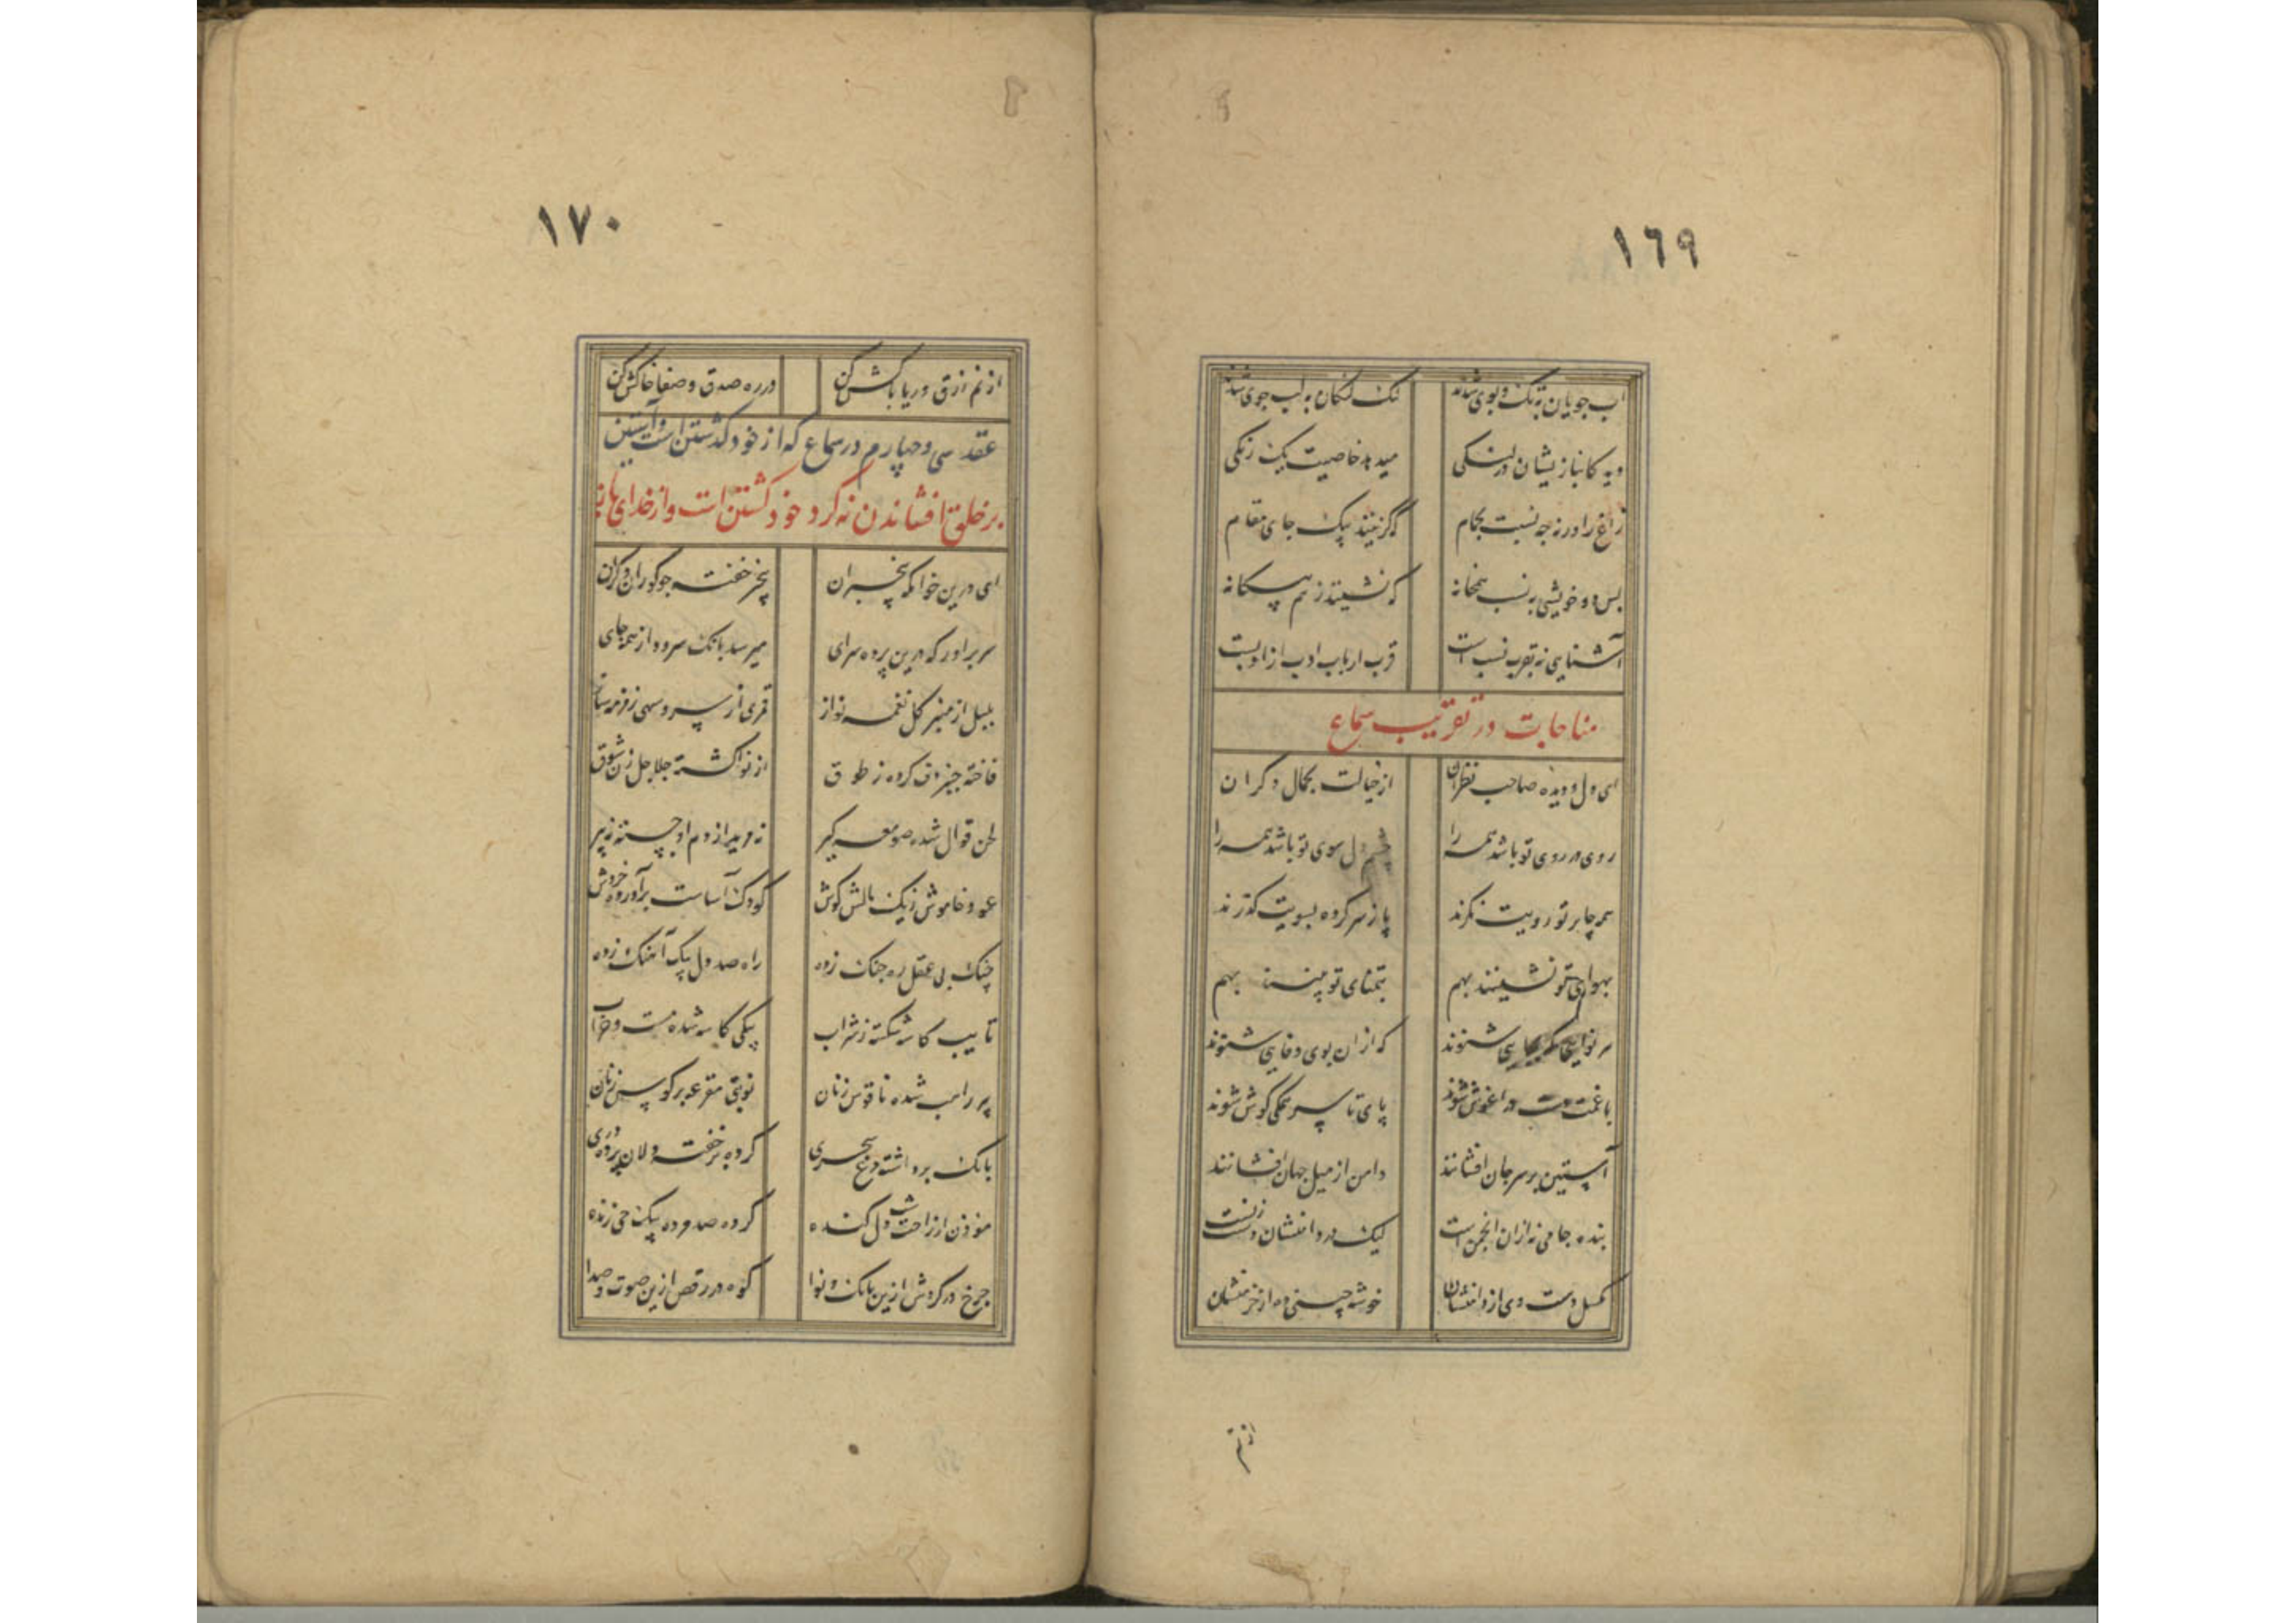 ١٦٩
آب جویان به تک و پوی شدند لنک لنکان به لب جوی شدند
دید کانباز یشان در لنکی میدهد خاصیت یک رنکی
زاغ را ورنه چه نسبت بحمام که کزینند بیک جای مقام
بس دو خویشی به نسب همخانه که نشینند ز هم بیکانه
آشنایی نه بقرب نسب است قرب ارباب ادب از ادبست
مناجات در تقریب سماع
ای دل و دیده صاحب نظران از خیالت بجمال دکران
روی در روی تو باشد همه را چشم دل سوی تو باشد همه را
همه جا بر تو رویت نکرند پا ز سر کرده بسویت کذرند
بهوای تو نشینند بهم بتمنای تو بینند بهم
هر نوایی که بجایی شنوند که از آن بوی وفایی شنوند
با غمت دست در آغوش شوند پای تا سر همکی کوش شوند
آستین بر سر جان افشانند دامن از میل جهان افشانند
بنده جامی نه از آن انجمن است لیک در دامنشان دست زنست
مکسل دست وی از دامنشان خوشه چینی ده از خرمنشان
از نم
١٧٠
از نم ازرق دریا باکش کن در ره صدق و صفا خاکش کن
عقد سی و چهارم در سماع که از خود کذشتن است و آستین
بر خلق افشاندن نه کرد خود کشتن است و از خدای باز
ای درین خوابکه بیخبران بیخبر خفته چو کوران و کران
سر برآور که درین پرده سرای میرسد بانک سرود از همه جای
بلبل از منبر کل نغمه نواز قمری از سرو سهی زمزمه ساز
فاخته چنبر دف کرده ز طوق از نوا کشته جلاجل زن شوق
لحن قوال شده صومعه کیر نه مرید از دم او جسته نه پیر
عود خاموش ز یک مالش کوش کودک آساست برآورده خروش
چنک بی عقل ره جنک زده راه صد دل بیک آهنک زده
تایب کاسه شکسته ز شراب بیکی کاسه شده مست و خراب
پیر راهب شده ناقوس زنان نوبتی مقرعه بر کوس زنان
بانک برداشته مرغ سحری کرده بر خفته دلان پرده دری
موذن از راحت شب دل کنده کرده صد مرده بیک حی زنده
چرخ در کردش ازین بانک و نوا کوه در رقص ازین صوت و صدا